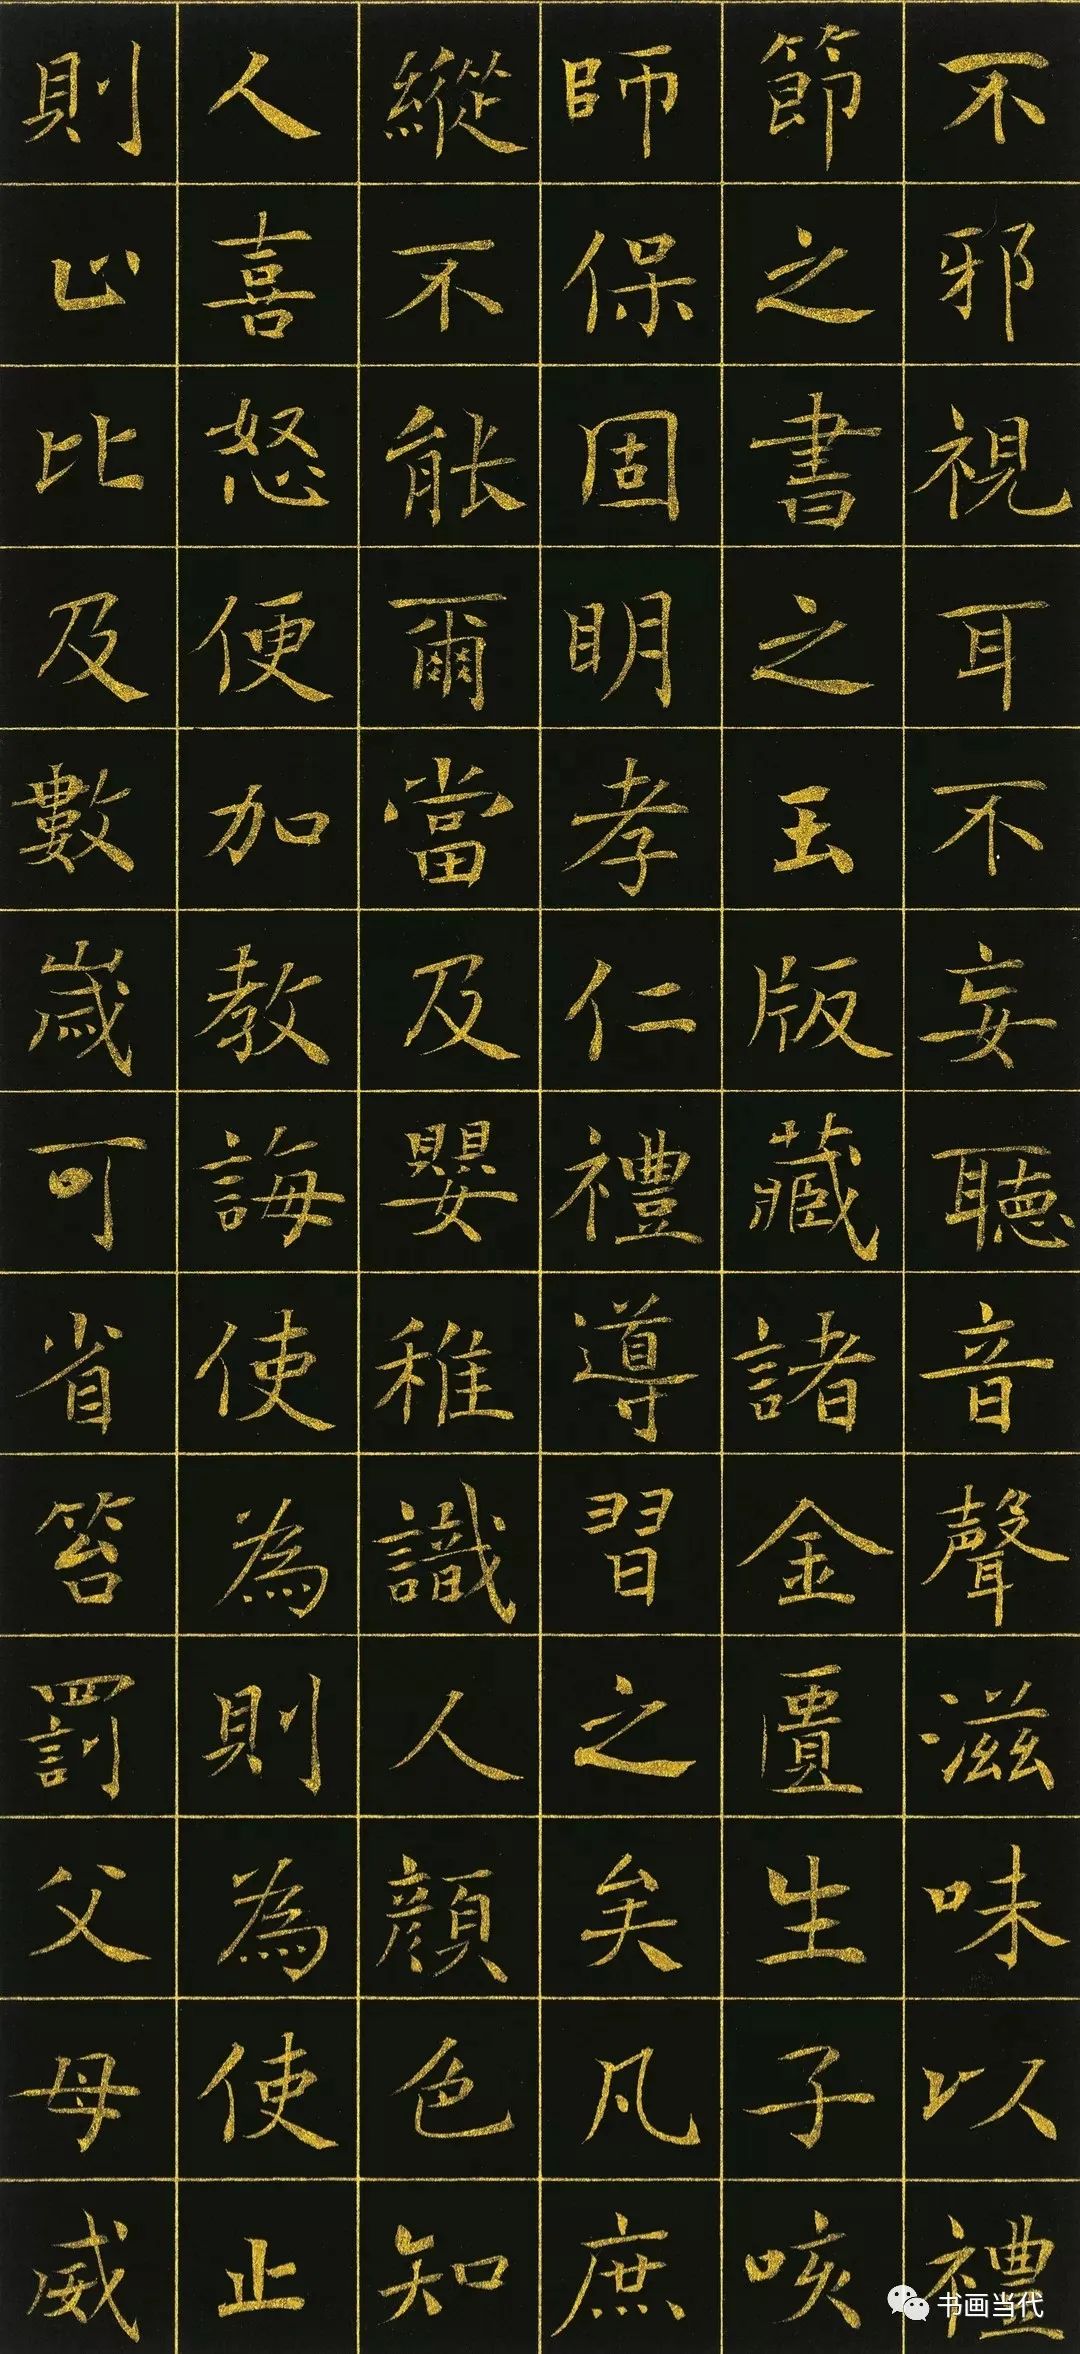 不邪視耳不妄聽音聲滋味以禮
節之書之玉版藏諸金匱生子咳
師保固明孝仁禮導習之矣凡庶
縱不能爾當及嬰稚識人顏色知
人喜怒便加教誨使為則為使止
則止比及數歲可省笞罰父母威
书画当代